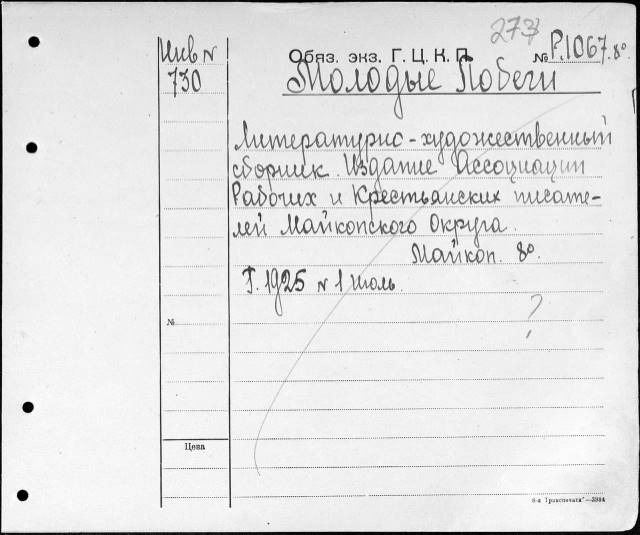 277
Инв N
730
Обяз. экз. Г. Ц. К. П. № Р.1067.8º
Молодые Побеги
Литературно-художественный
сборник. Издание Ассоциации
Рабочих и Крестьянских писате-
лей Майкопского Округа.
Майкоп. 8º.
Г. 1925 N 1 Июль.
?
№
Цена